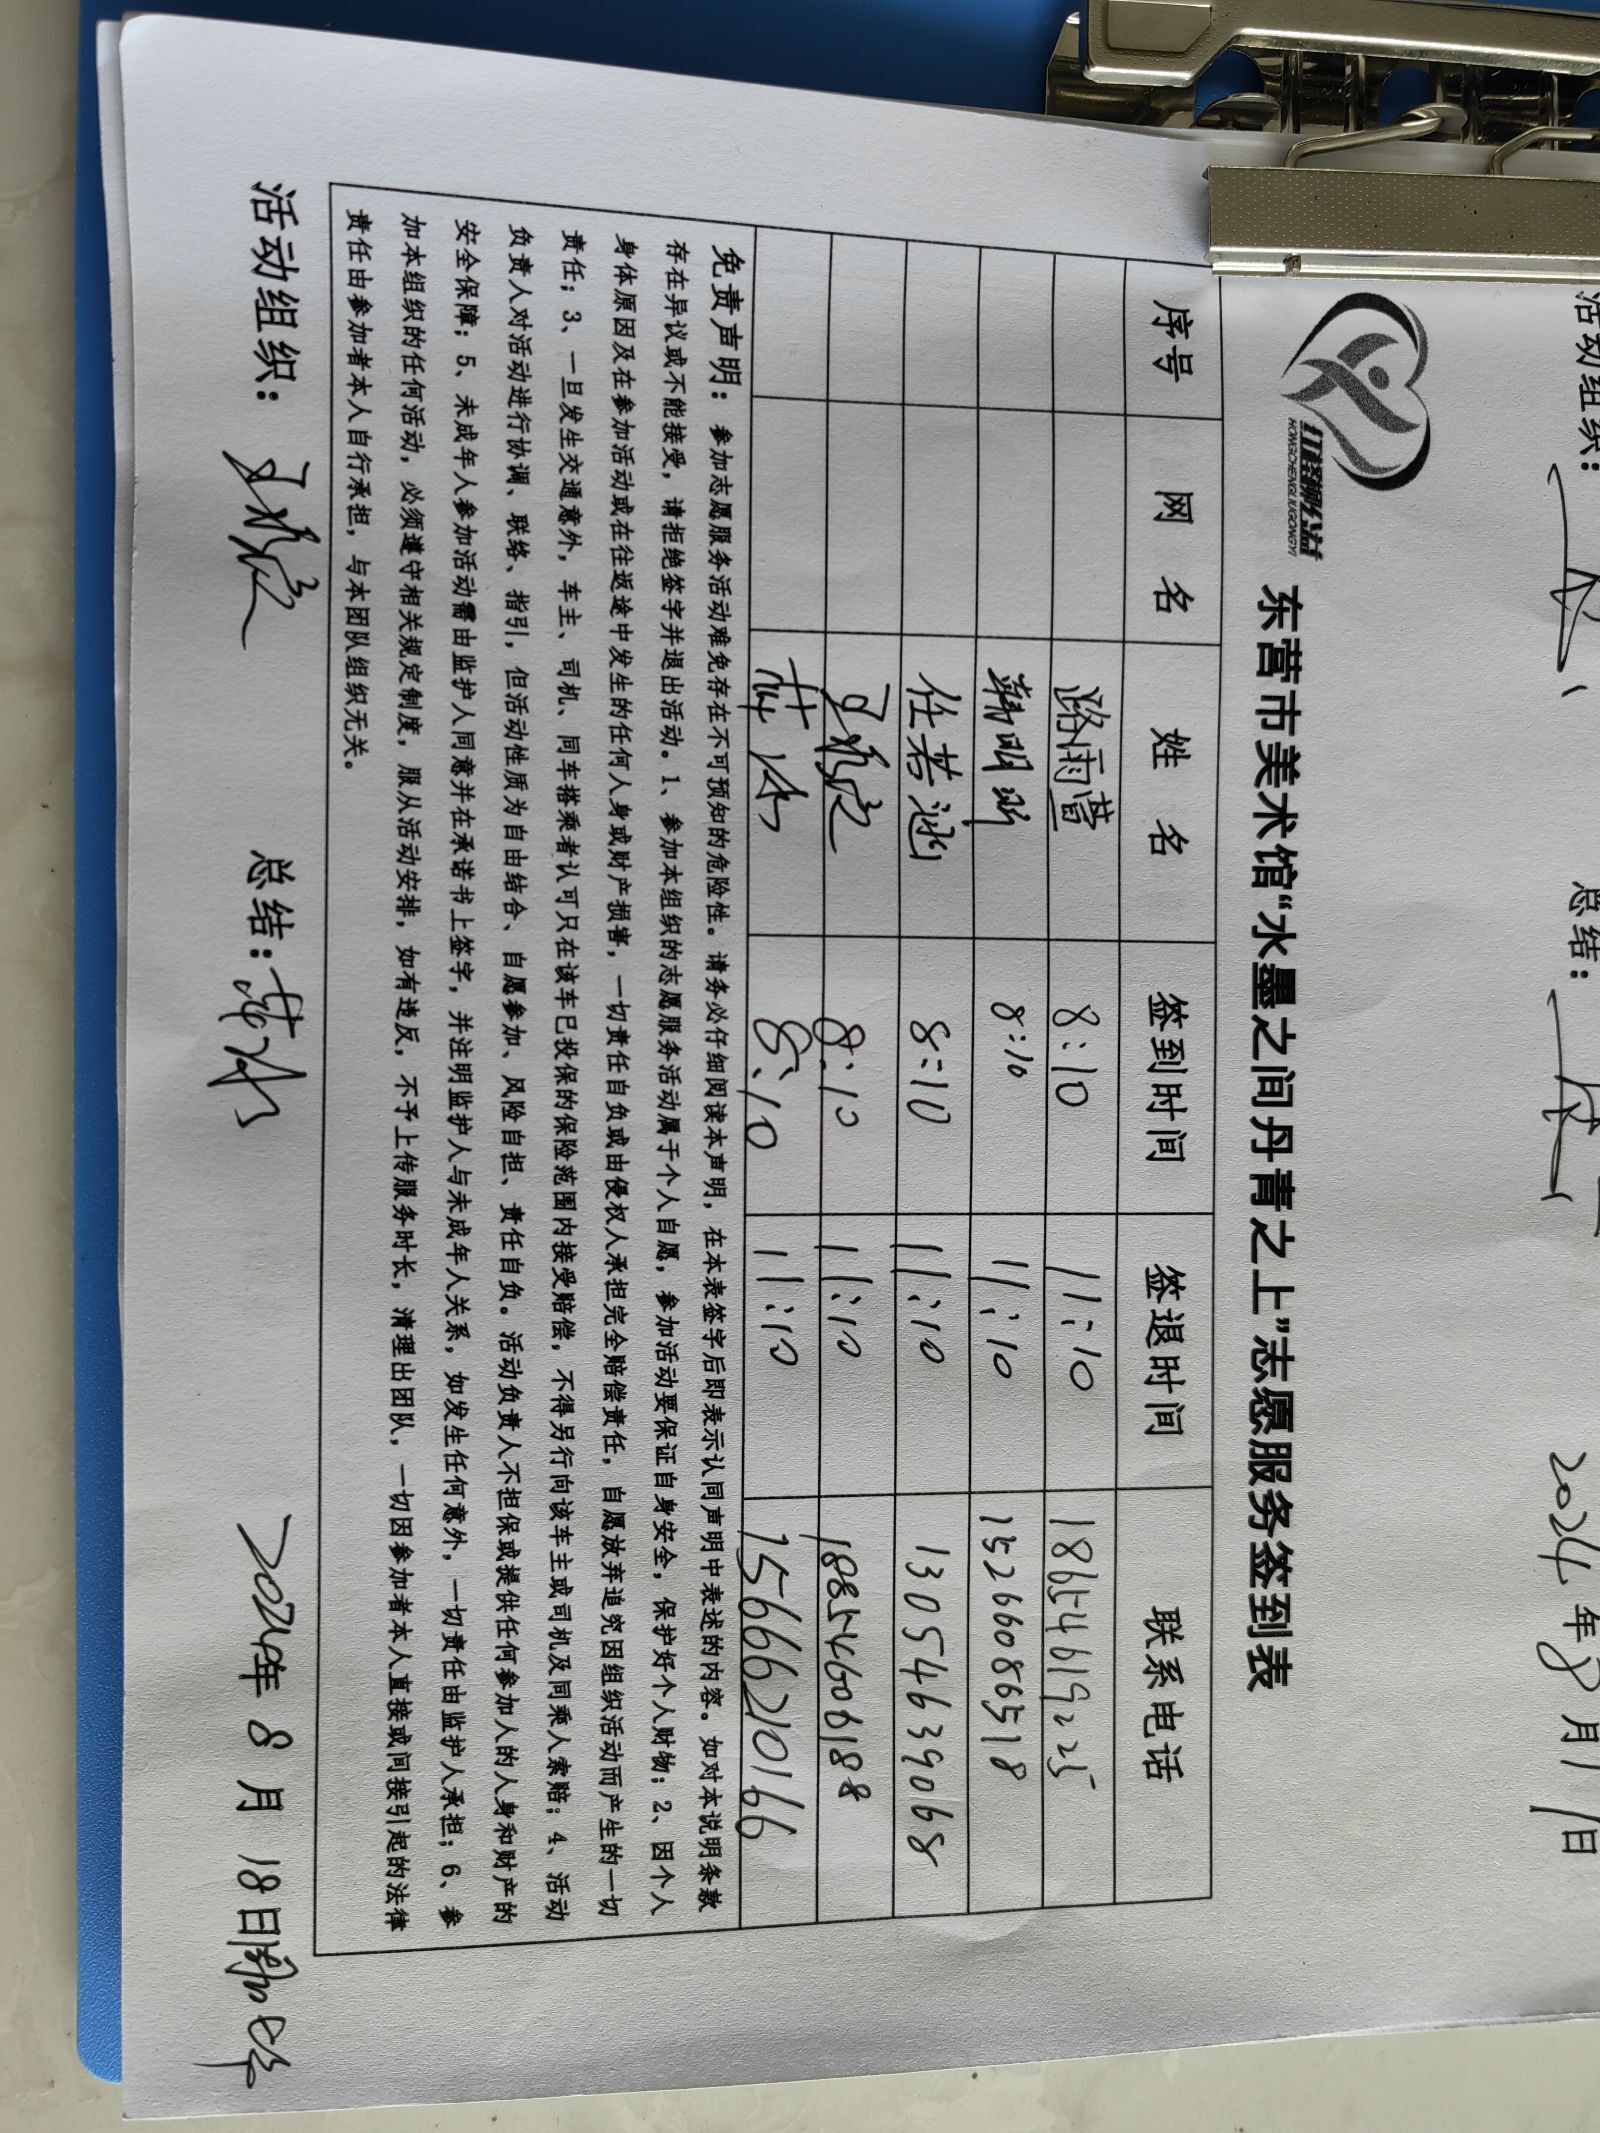 活动组织：
总结：
2024年8月11日
红鑫橙悦公益
东营市美术馆“水墨之间丹青之上”志愿服务签到表
序号 网 名 姓 名 签到时间 签退时间 联系电话
路雨萱 8:10 11:10 18654619225
韩明珊 8:10 11:10 15266086518
任若涵 8:10 11:10 13054639068
8:10 11:10 18854606188
8:10 11:10 15666210166
免责声明：参加志愿服务活动难免存在不可预知的危险性。请务必仔细阅读本声明，在本表签字后即表示认同声明中表述的内容。如对本说明条款
存在异议或不能接受，请拒绝签字并退出活动。1、参加本组织的志愿服务活动属于个人自愿，参加活动要保证自身安全，保护好个人财物；2、因个人
身体原因及在参加活动或在往返途中发生的任何人身或财产损害，一切责任自负或由侵权人承担完全赔偿责任，自愿放弃追究因组织活动而产生的一切
责任；3、一旦发生交通意外，车主、司机、同车搭乘者认可只在该车已投保的保险范围内接受赔偿，不得另行向该车主或司机及同乘人索赔；4、活动
负责人对活动进行协调、联络、指引，但活动性质为自由结合、自愿参加、风险自担、责任自负。活动负责人不担保或提供任何参加人的人身和财产的
安全保障；5、未成年人参加活动需由监护人同意并在承诺书上签字，并注明监护人与未成年人关系，如发生任何意外，一切责任由监护人承担；6、参
加本组织的任何活动，必须遵守相关规定制度，服从活动安排，如有违反，不予上传服务时长，清理出团队，一切因参加者本人直接或间接引起的法律
责任由参加者本人自行承担，与本团队组织无关。
活动组织： 总结： 2024年 8 月 18日